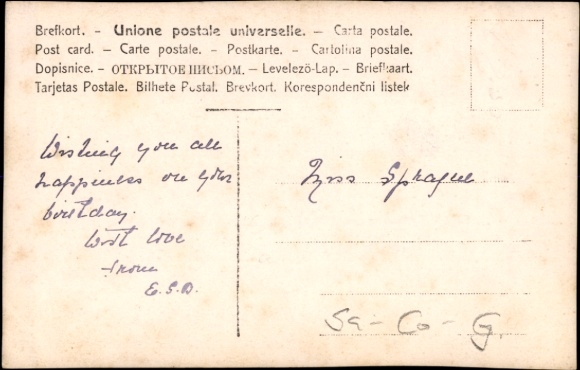 Brefkort. - Unione postale universelle. - Carta postale.
Post card. - Carte postale. - Postkarte. - Cartolina postale.
Dopisnice. - ОТКРЫТОЕ ПИСЬОМ. - Levelező-Lap. - Briefkaart.
Tarjetas Postale. Bilhete Postal. Brevkort. Korespondenčni listek
Wishing you all
happiness on your
birthday.
With love
from
E.S.D.
Miss Sprague
Sa - Co - G.